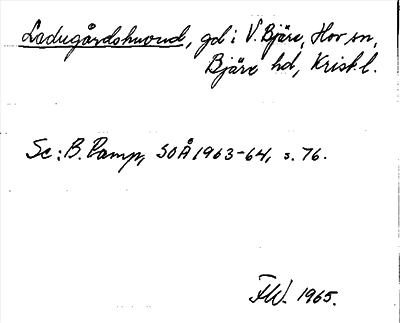 Ladugårdshuvud, gd i V. Bjäre, Hov sn,
Bjäre hd, Krist. l.
Se: B. Pamp, SOÅ 1963-64, s. 76.
FW. 1965.